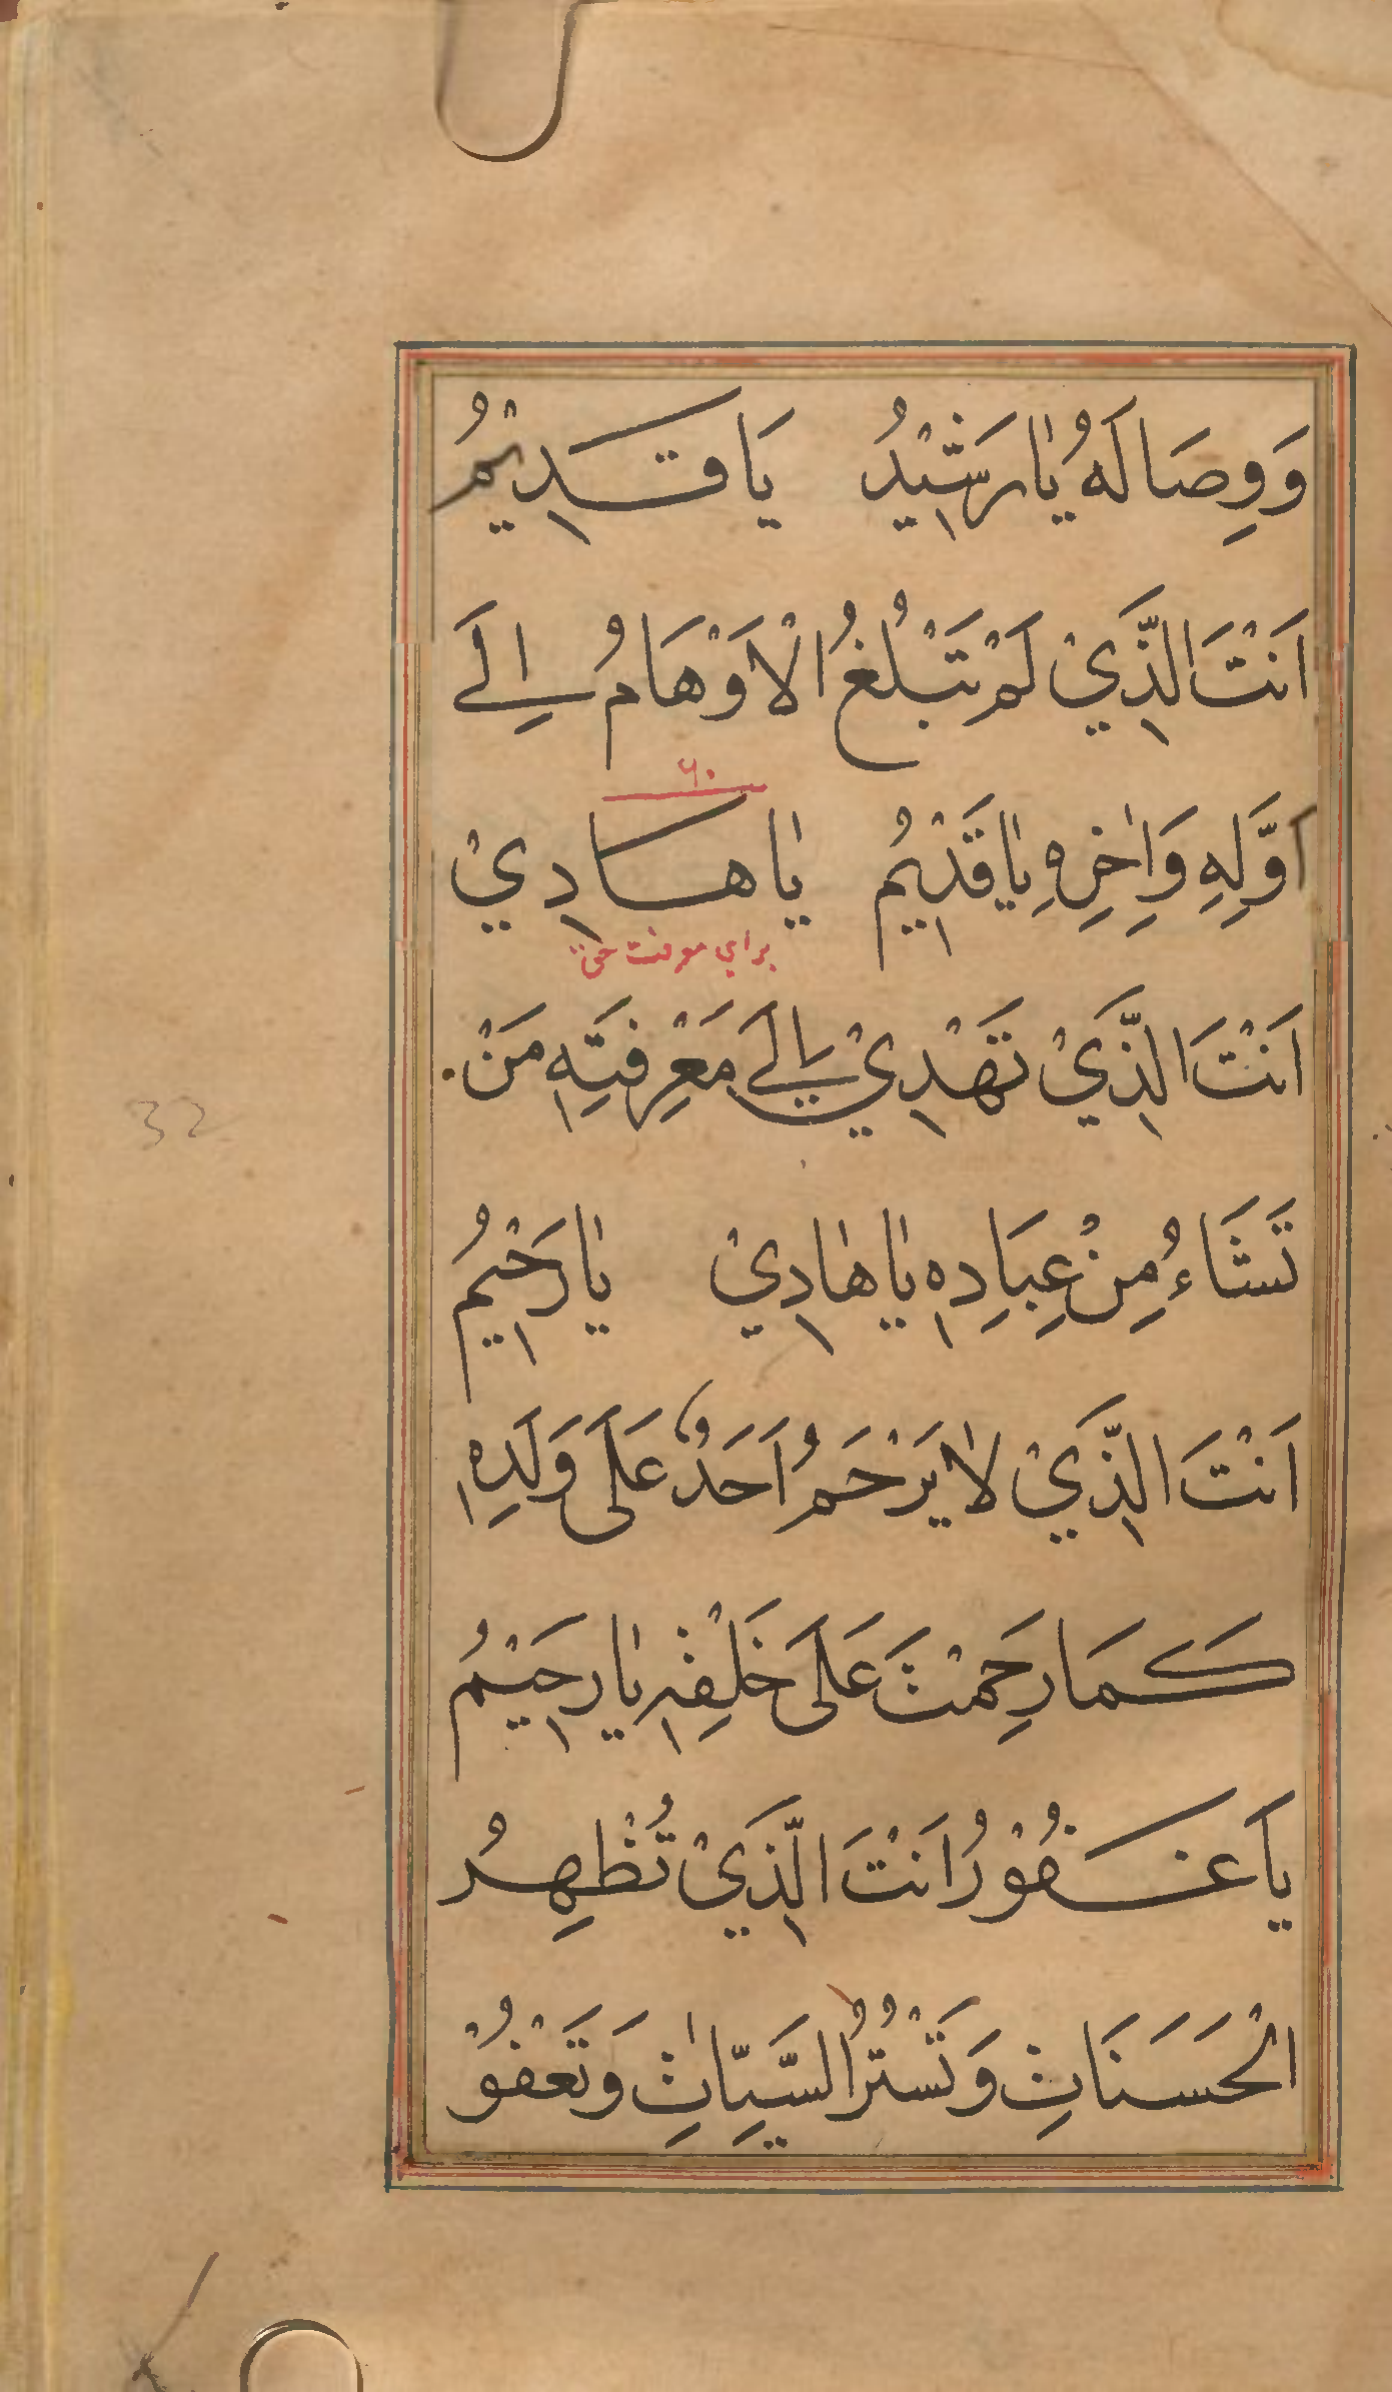 وَوِصَالَهُ يٰارَشْيِدُ يَا قَدِيْمُ
اَنْتَ الَّذِيْ لَمْ تَبْلُغُ الْاَوْهَامُ اِلَے
۶۰
اَوَّلِهِ وَاٰخِرِهِ يٰاقَدْيِمُ يٰا هَادِيْ
براي معرفت حق
اَنْتَ الَّذِيْ تَهْدِيْ اِلَے مَعْرِفَتِهِ مَنْ
32
تَشَاءُ مِنْ عِبَادِهِ يٰا هٰادِيْ يٰا رَحْيِمُ
اَنْتَ الَّذِيْ لٰا يَرْحَمُ اَحَدٌ عَلَى وَلَدِهِ
كَمَا رَحِمْتَ عَلَى خَلْقِهِ يٰا رَحِيْمُ
يَا غَفُوْرُ اَنْتَ الَّذِيْ تُظْهِرُ
الْحَسَنَاتِ وَتَسْتُرُ السَّيِّاٰتِ وَتَعْفُوْ